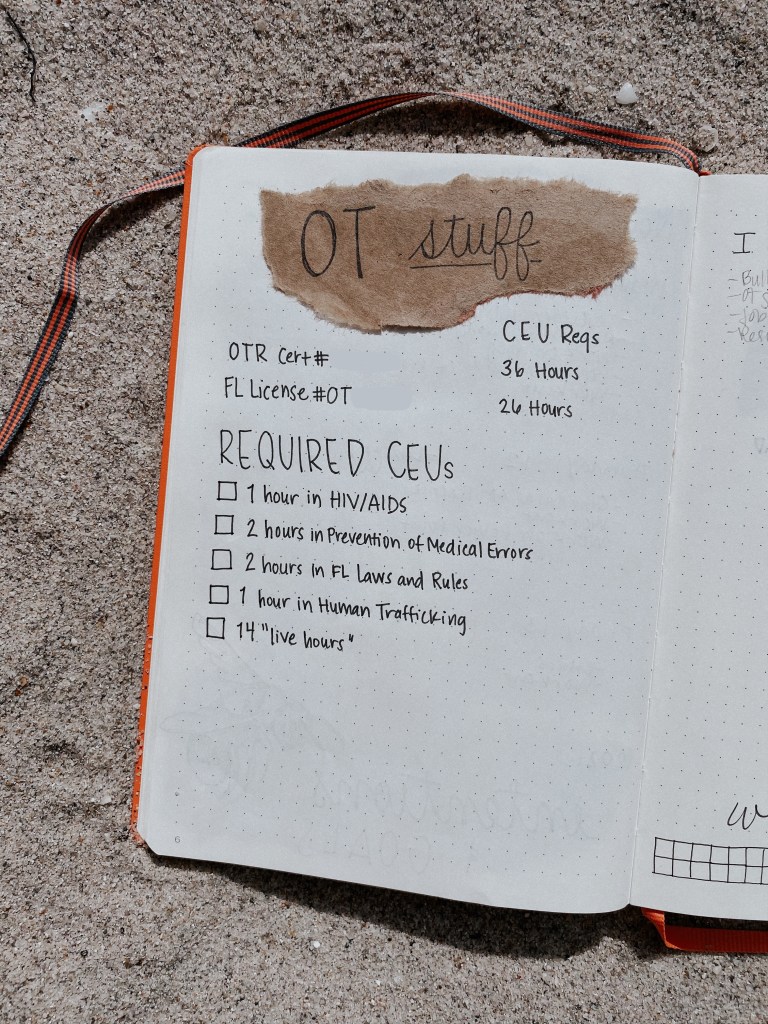 OT stuff
CEU Reqs
OTR Cert#
36 Hours
FL License #OT
26 Hours
REQUIRED CEUs
1 hour in HIV/AIDS
2 hours in Prevention of Medical Errors
2 hours in FL Laws and Rules
1 hour in Human Trafficking
14 "live hours"
6
I